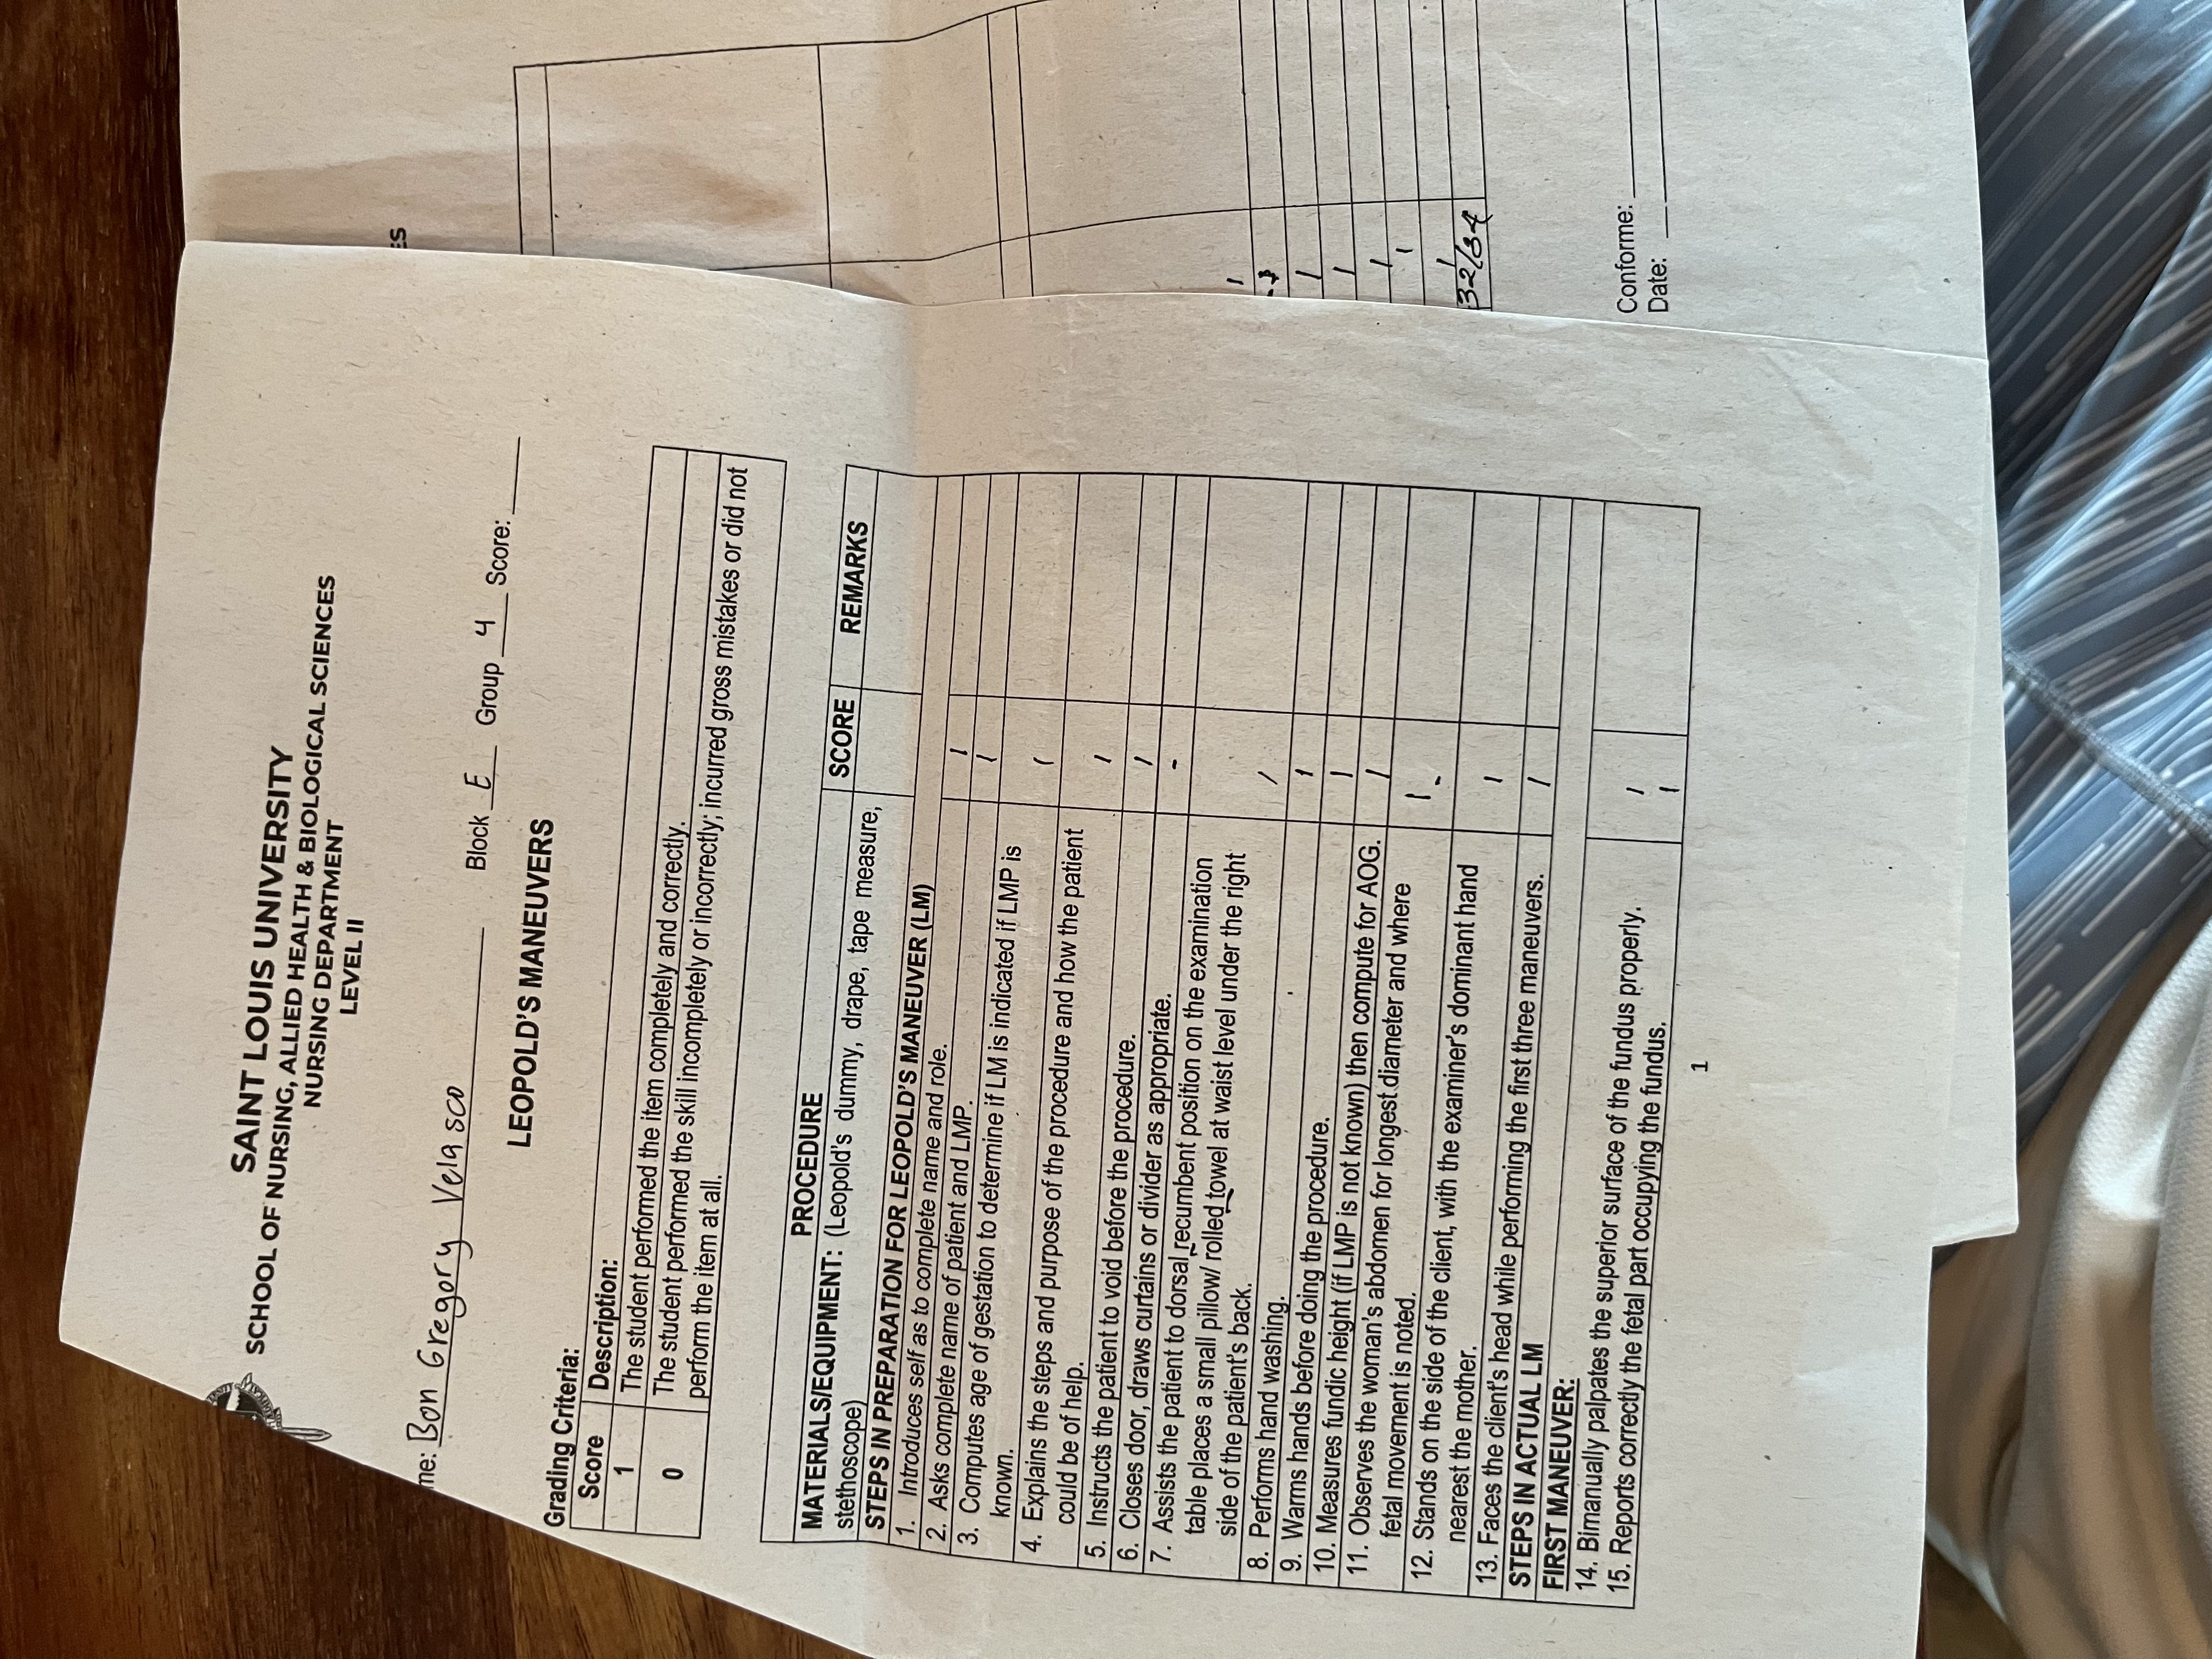 SAINT LOUIS UNIVERSITY
SCHOOL OF NURSING, ALLIED HEALTH & BIOLOGICAL SCIENCES
NURSING DEPARTMENT
LEVEL II
me: Bon Gregory Velasco Block E Group 4 Score:
LEOPOLD'S MANEUVERS
Grading Criteria:
Score Description:
1 The student performed the item completely and correctly.
0 The student performed the skill incompletely or incorrectly; incurred gross mistakes or did not
perform the item at all.
PROCEDURE SCORE REMARKS
MATERIALS/EQUIPMENT: (Leopold's dummy, drape, tape measure,
stethoscope)
STEPS IN PREPARATION FOR LEOPOLD'S MANEUVER (LM)
1. Introduces self as to complete name and role. 1
2. Asks complete name of patient and LMP. 1
3. Computes age of gestation to determine if LM is indicated if LMP is
known. 1
4. Explains the steps and purpose of the procedure and how the patient
could be of help. 1
5. Instructs the patient to void before the procedure. 1
6. Closes door, draws curtains or divider as appropriate. -
7. Assists the patient to dorsal recumbent position on the examination
table places a small pillow/ rolled towel at waist level under the right
side of the patient's back. 1
8. Performs hand washing. 1
9. Warms hands before doing the procedure. 1
10. Measures fundic height (if LMP is not known) then compute for AOG. 1
11. Observes the woman's abdomen for longest diameter and where
fetal movement is noted. 1-
12. Stands on the side of the client, with the examiner's dominant hand
nearest the mother. 1
13. Faces the client's head while performing the first three maneuvers. 1
STEPS IN ACTUAL LM
FIRST MANEUVER:
14. Bimanually palpates the superior surface of the fundus properly. 1
15. Reports correctly the fetal part occupying the fundus. 1
1
ES
1
1
1
1
1
1
32/34
Conforme:
Date: